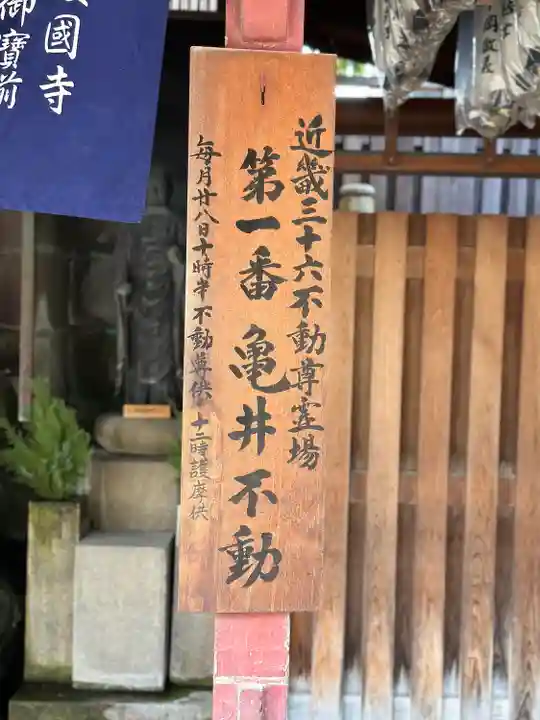 近畿三十六不動尊霊場
第一番 亀井不動
毎月廿八日十時半不動尊供 十二時護摩供
國寺
御寶前